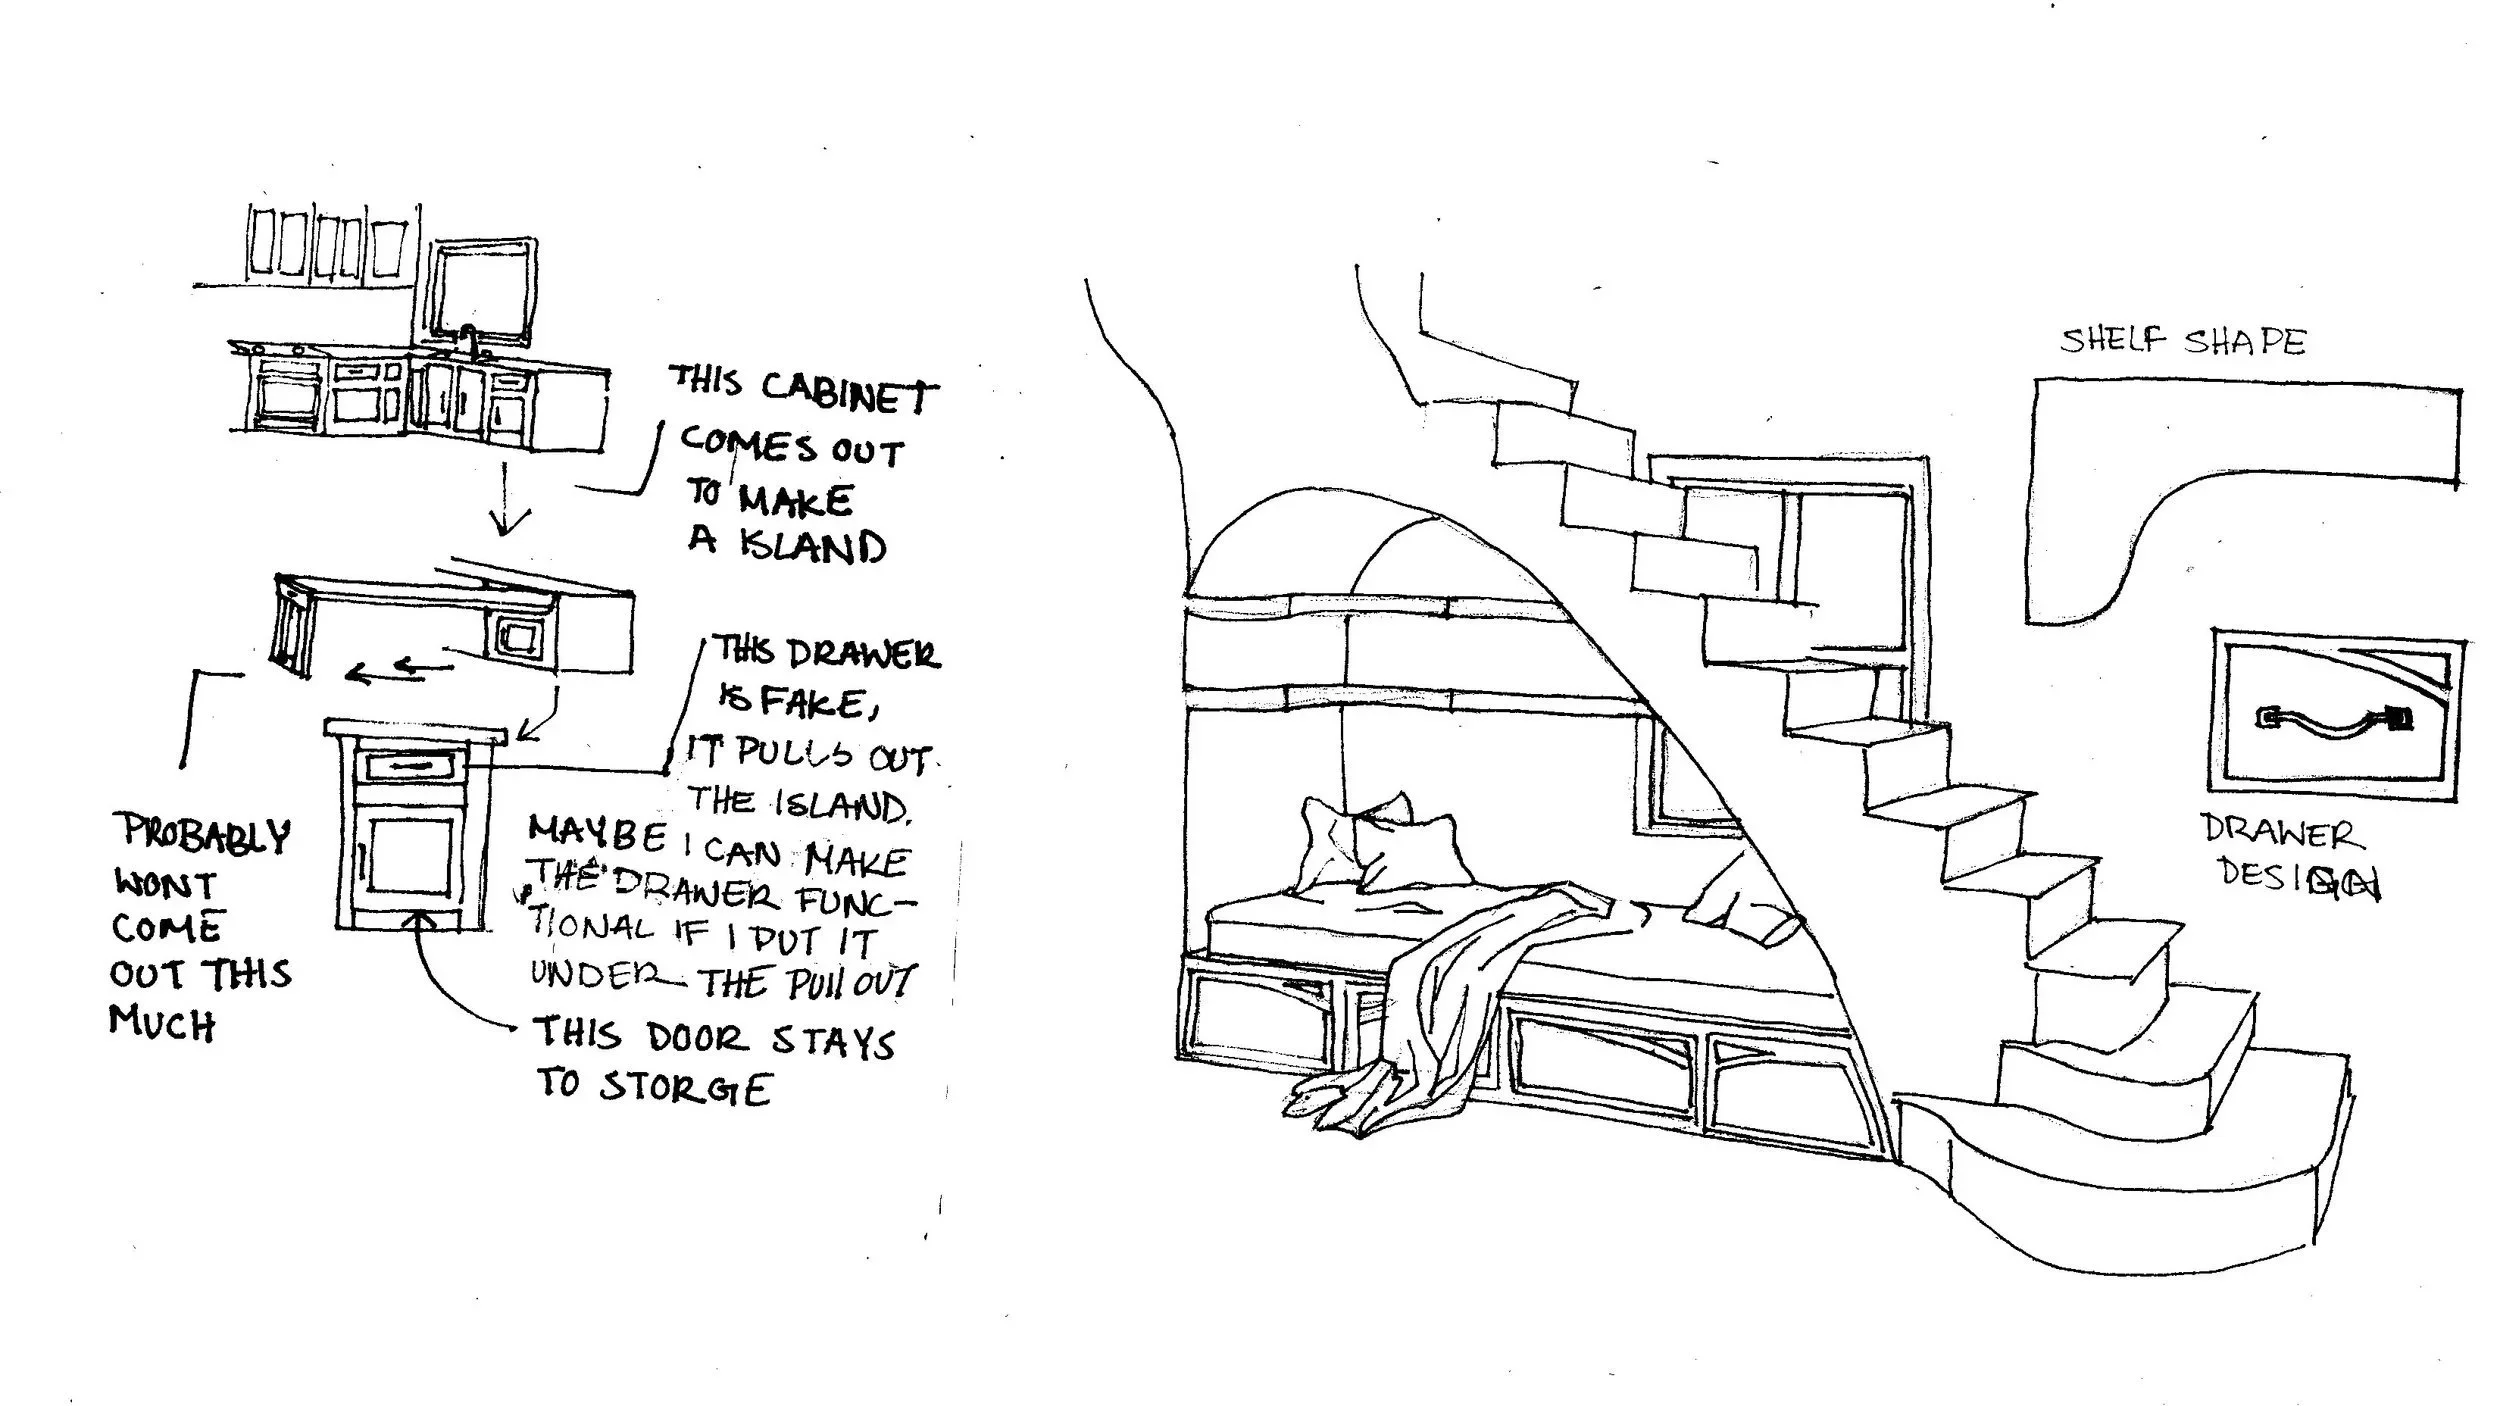 THIS CABINET
COMES OUT
TO MAKE
A ISLAND
THIS DRAWER
IS FAKE,
IT PULLS OUT
THE ISLAND.
MAYBE I CAN MAKE
THE DRAWER FUNC-
TIONAL IF I PUT IT
UNDER THE PUll OUT
THIS DOOR STAYS
TO STORGE
PROBABLY
WONT
COME
OUT THIS
MUCH
SHELF SHAPE
DRAWER
DESIGN